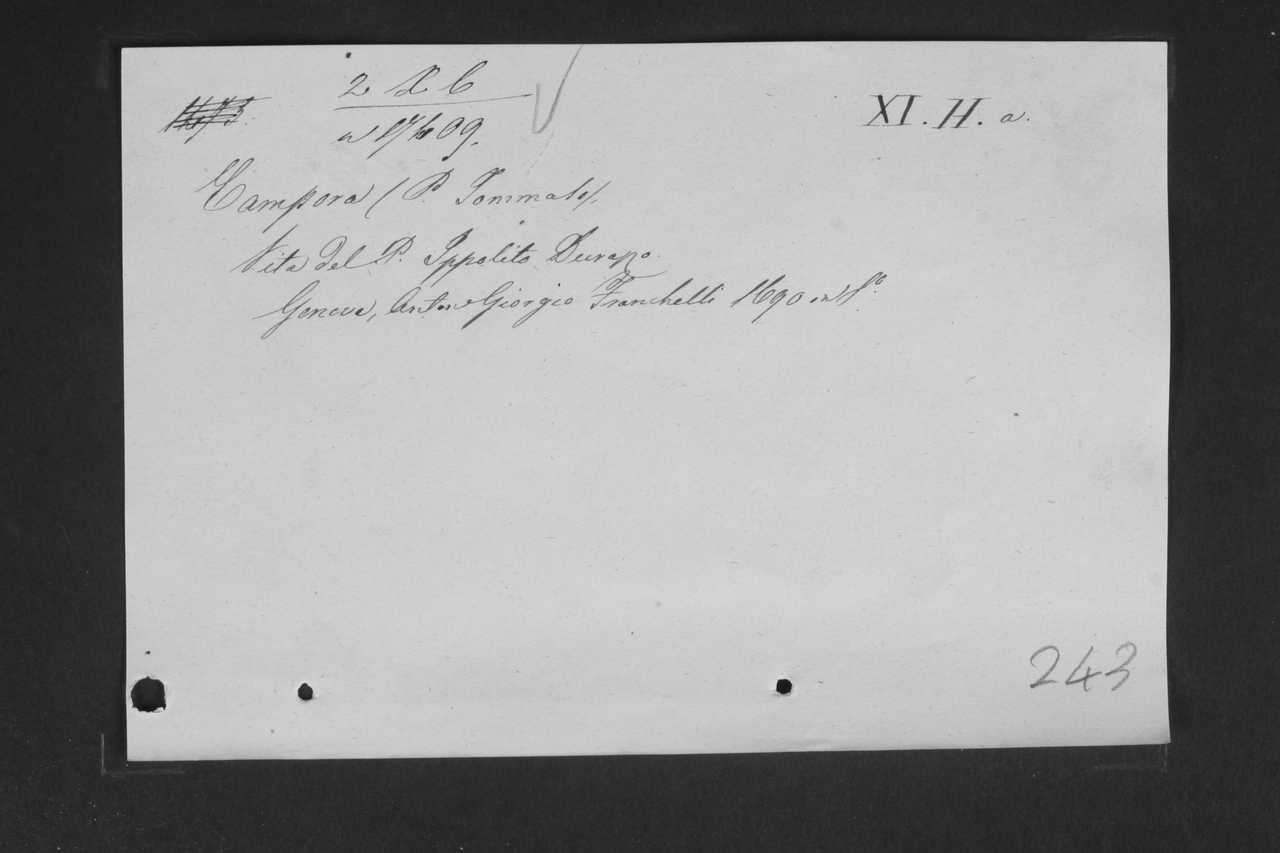 2 X C
XI. H. a.
Campora (P. Tommaso).
Vita del P. Ippolito Durazzo.
Genova, Anton Giorgio Franchelli 1690 in 8º
243